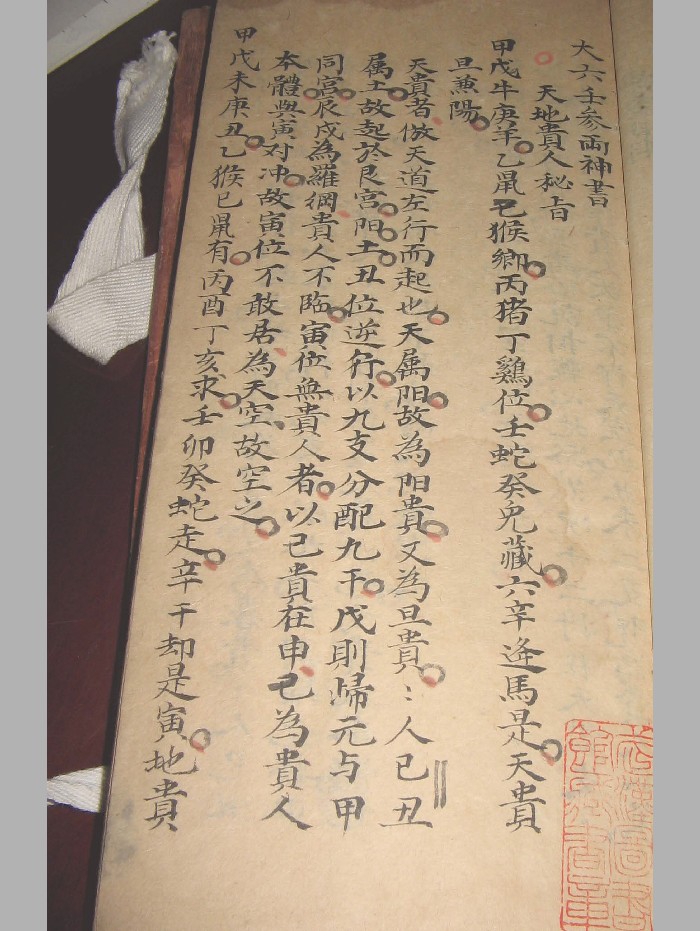 大六壬參兩神書
天地貴人秘旨
甲戊牛庚羊乙鼠己猴鄉丙猪丁鷄位壬蛇癸兔藏六辛逢馬是天貴
旦兼陽
天貴者倣天道左行而起也天属阳故為阳貴又為旦貴〻人已丑
属土故起於艮宮阳土丑位逆行以九支分配九干戊則歸元与甲
同宮辰戌為羅綱貴人不臨寅位無貴人者以己貴在申己為貴人
本體與寅对冲故寅位不敢居為天空故空之
甲戊未庚丑乙猴己鼠有丙酉丁亥求壬卯癸蛇走辛干却是寅地貴
武漢圖書館藏書章